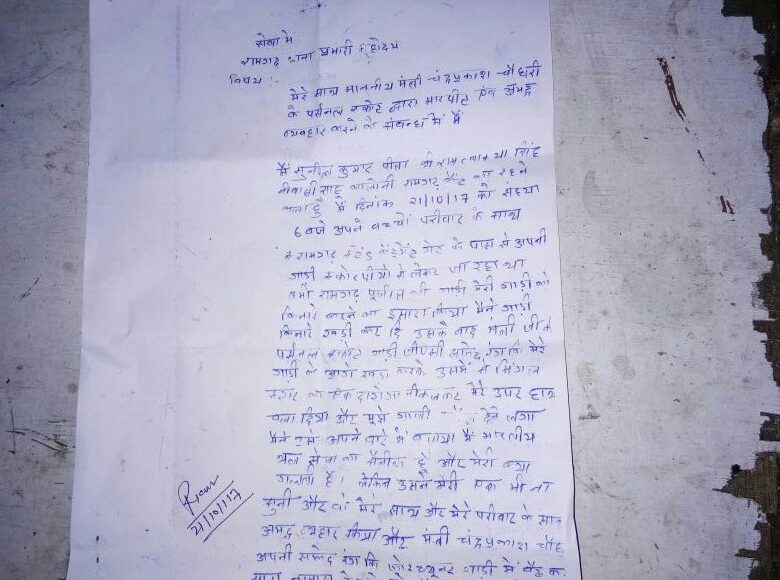 सेवा में
रामगढ़ थाना प्रभारी महोदय
विषय :-
मेरे साथ माननीय मंत्री चंद्रप्रकाश चौधरी
के पर्सनल स्कोट द्वारा मारपीट एंव अभद्र
व्यवहार करने के संबन्ध में में
मैं सुनील कुमार पीता श्री सिंह
नीवासी साहू कालोनी रामगढ़ कैंट का रहने
वाला हुँ मैं दिनांक 21/10/17 को संध्या
6 बजे अपने बच्चों परीवार के साथ
रामगढ़ गेट के पास से अपनी
गाडी स्कोरपीयो से लेकर जा रहा था
तभी रामगढ़ पुलीस की गाडी मेरी गाडी को
किनारे करने का इसारा किया मैंने गाडी
किनारे खडी कर दि उसके बाद मंत्री जी के
पर्सनल स्कोट गाडी जीप्सी सफेद रंग कि मेरे
गाडी के आगे खडा करके उसमें से सिंगल
स्टार का एक दारोगा नीकलकर मेरे उपर हाथ
चला दिया और मुझे गाली देने लगा
मैंने उसे अपने बारे में बताया मैं भारतीय
थल सेना का सैनीक हुँ और मेरी क्या
गलती है। लेकिन उसने मेरी एक भी ना
सुनी और वो मेरे साथ और मेरे परीवार के साथ
अभद्र व्यहार किया और मंत्री चंद्रप्रकाश चौध
अपनी सफेद रंग कि फोरच्यूनर गाडी में बैठ क
21/10/17